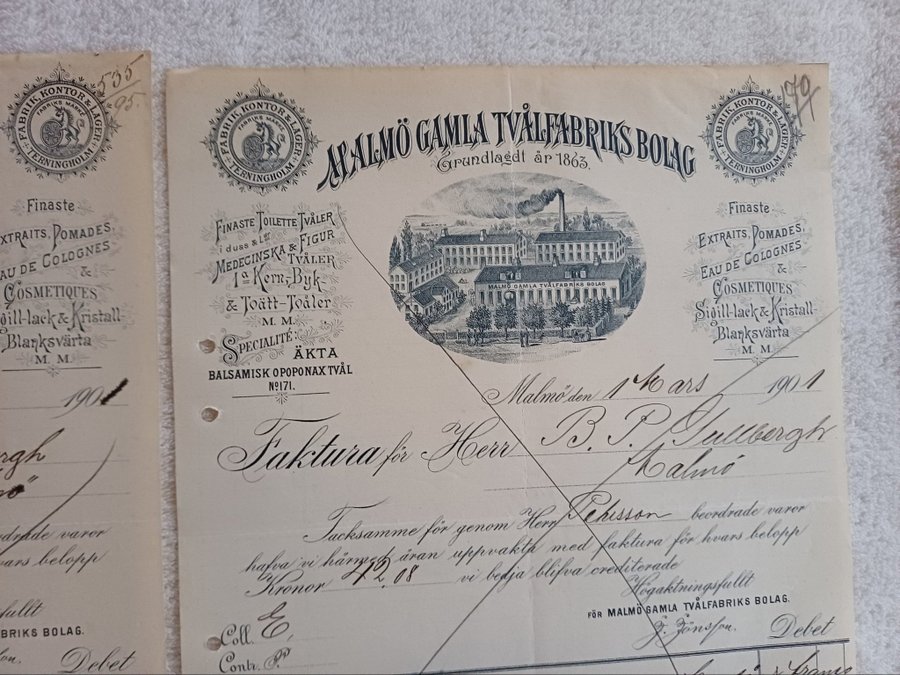 535
95.
FABRIK, KONTOR & LAGER
FABRIKS MÄRKE
TERNINGHOLM
Finaste
EXTRAITS, POMADES,
EAU DE COLOGNES
&
COSMETIQUES
Sigill-lack & Kristall-
Blanksvärta
M. M.
1901
rgh
mö"
ordrade varor
hvars belopp
fullt
BRIKS BOLAG.
Debet
FABRIK, KONTOR & LAGER
FABRIKS MÄRKE
TERNINGHOLM
MALMÖ GAMLA TVÅLFABRIKS BOLAG
Grundlagdt år 1863.
FABRIK, KONTOR & LAGER
FABRIKS MÄRKE
TERNINGHOLM
179
FINASTE TOILETTE TVÅLER
i duss & Lgr
MEDECINSKA & FIGUR
TVÅLER
Ia Korn-, Byk-
& Toätt-Tvåler
M. M.
SPECIALITÉ:
ÄKTA
BALSAMISK OPOPONAX TVÅL
No 171.
MALMÖ GAMLA TVÅLFABRIKS BOLAG
Finaste
EXTRAITS, POMADES,
EAU DE COLOGNES
&
COSMETIQUES
Sigill-lack & Kristall-
Blanksvärta
M. M.
Malmö den 1 Mars 1901
Faktura för Herr B. P. Gullbergh
Malmö
Tacksamme för genom Herr Pehrsson beordrade varor
hafva vi härmed äran uppvakta med faktura för hvars belopp
Kronor 42.08 vi bedja blifva crediterade
Högaktningsfullt
FÖR MALMÖ GAMLA TVÅLFABRIKS BOLAG.
Coll. E, J. Jönsson. Debet
Contr. P